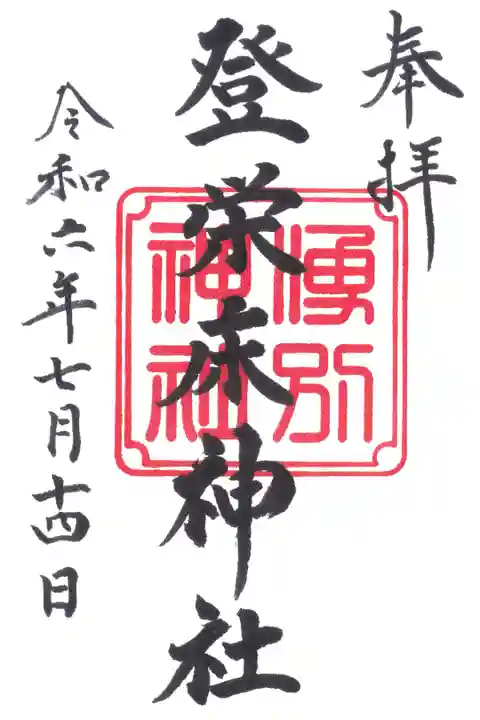 奉拝
登栄床神社
湧別
神社
令和六年七月十四日